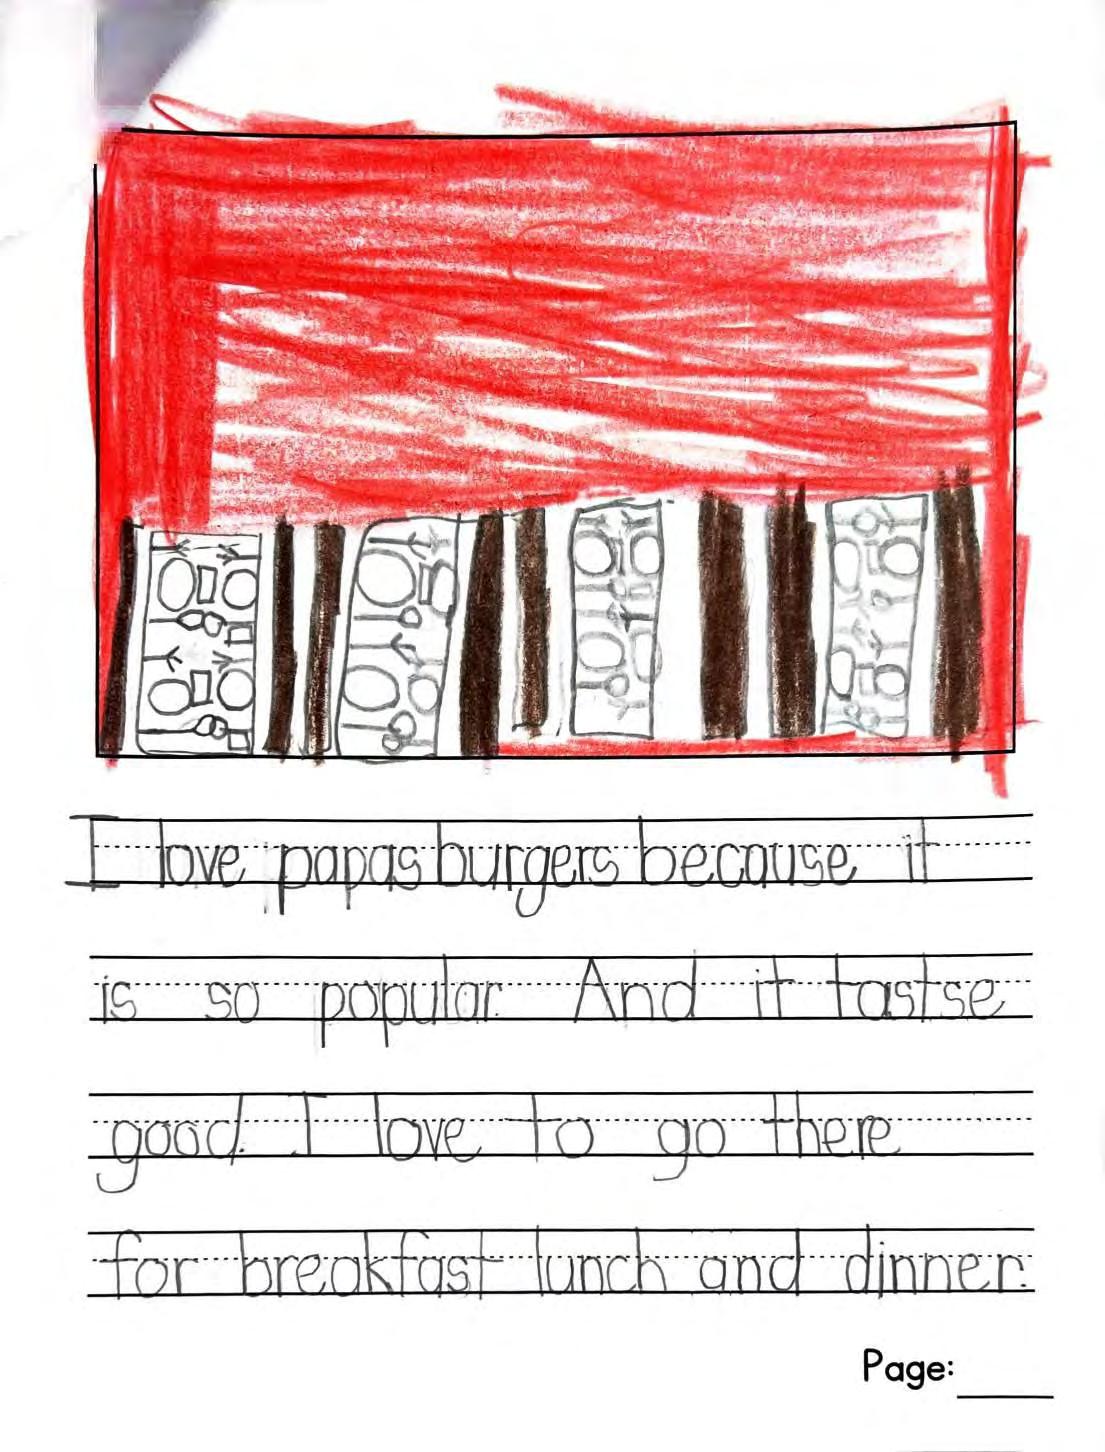 I love papas burgers because it
is so popular. And it tastse
good. I love to go there
for breakfast lunch and dinner.
Page: